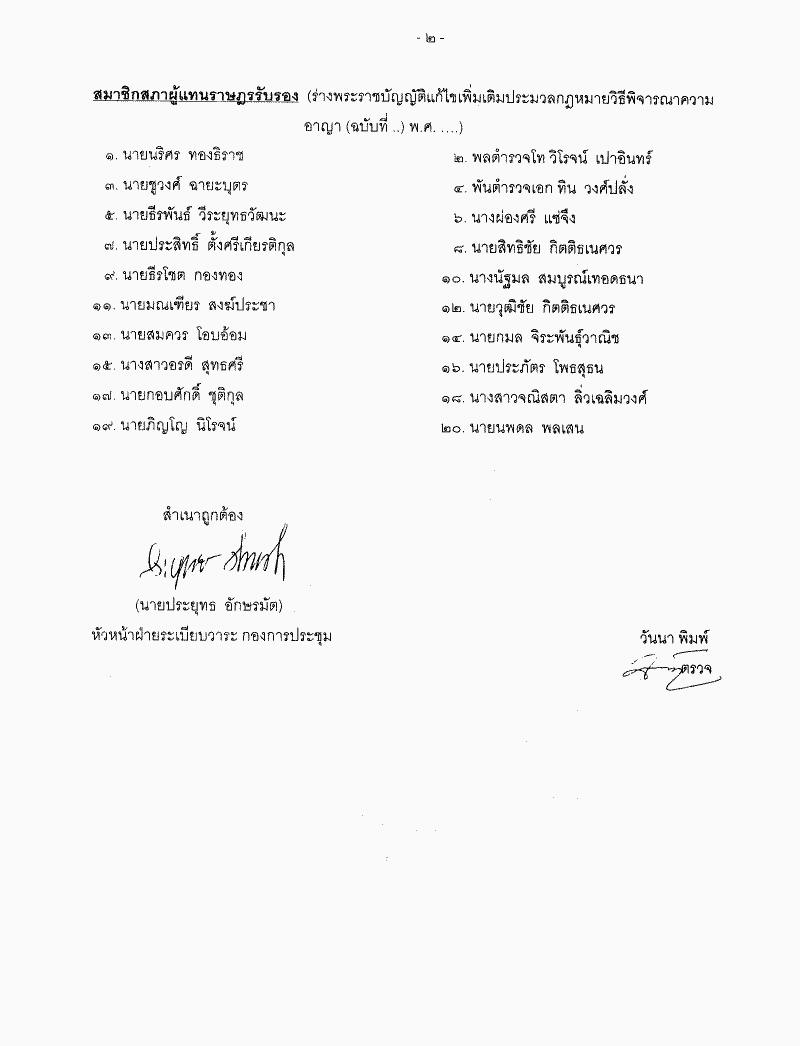 - ๒ -
สมาชิกสภาผู้แทนราษฎรรับรอง (ร่างพระราชบัญญัติแก้ไขเพิ่มเติมประมวลกฎหมายวิธีพิจารณาความ
อาญา (ฉบับที่ ..) พ.ศ. ....)
๑. นายนริศร ทองธิราช ๒. พลตำรวจโท วิโรจน์ เปาอินทร์
๓. นายชูวงศ์ ฉายะบุตร ๔. พันตำรวจเอก ทิน วงศ์ปลั่ง
๕. นายธีรพันธ์ วีระยุทธวัฒนะ ๖. นางผ่องศรี แซ่จึง
๗. นายประสิทธิ์ ตั้งศรีเกียรติกุล ๘. นายสิทธิชัย กิตติธเนศวร
๙. นายธีรโชต กองทอง ๑๐. นางนัฐมล สมบูรณ์เทอดธนา
๑๑. นายมณเฑียร สงฆ์ประชา ๑๒. นายวุฒิชัย กิตติธเนศวร
๑๓. นายสมควร โอบอ้อม ๑๔. นายกมล จิระพันธุ์วาณิช
๑๕. นางสาวอรดี สุทธศรี ๑๖. นายประภัตร โพธสุธน
๑๗. นายกอบศักดิ์ ชุติกุล ๑๘. นางสาวจณิสตา ลิ่วเฉลิมวงศ์
๑๙. นายภิญโญ นิโรจน์ ๒๐. นายนพดล พลเสน
สำเนาถูกต้อง
(นายประยุทธ อักษรมัต)
หัวหน้าฝ่ายระเบียบวาระ กองการประชุม วันนา พิมพ์
ตรวจ